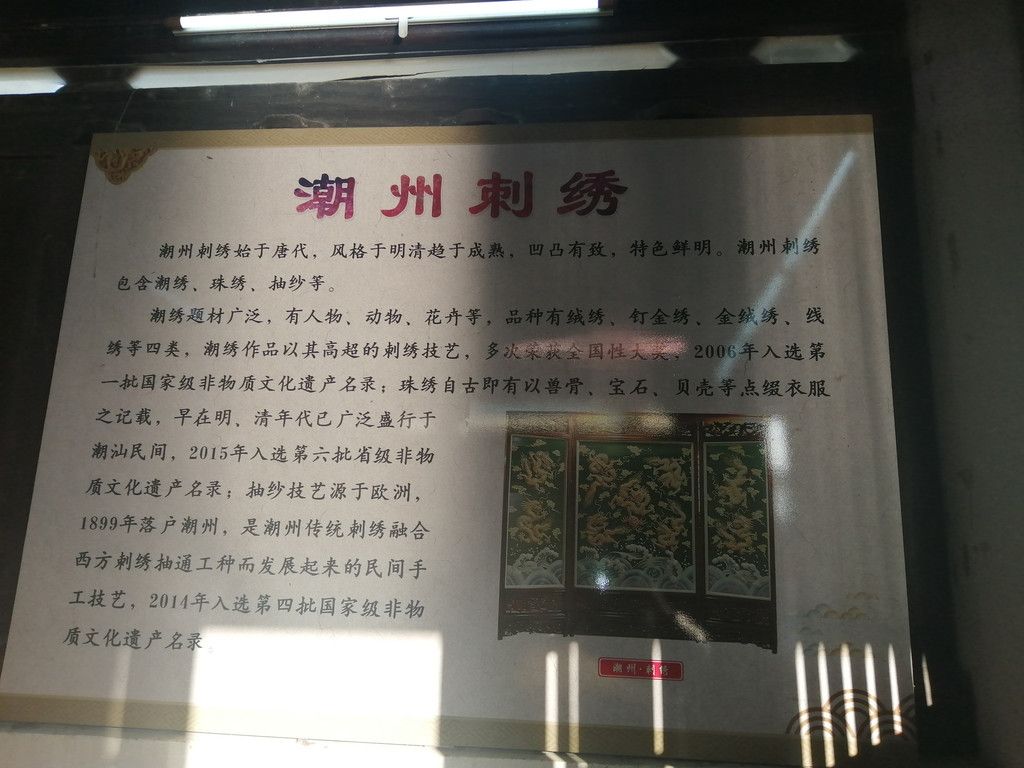 潮州刺绣
潮州刺绣始于唐代，风格于明清趋于成熟，凹凸有致，特色鲜明。潮州刺绣
包含潮绣、珠绣、抽纱等。
潮绣题材广泛，有人物、动物、花卉等，品种有绒绣、钉金绣、金绒绣、线
绣等四类，潮绣作品以其高超的刺绣技艺，多次荣获全国性大奖，2006年入选第
一批国家级非物质文化遗产名录；珠绣自古即有以兽骨、宝石、贝壳等点缀衣服
之记载，早在明、清年代已广泛盛行于
潮汕民间，2015年入选第六批省级非物
质文化遗产名录；抽纱技艺源于欧洲，
1899年落户潮州，是潮州传统刺绣融合
西方刺绣抽通工种而发展起来的民间手
工技艺，2014年入选第四批国家级非物
质文化遗产名录。
潮州·刺绣